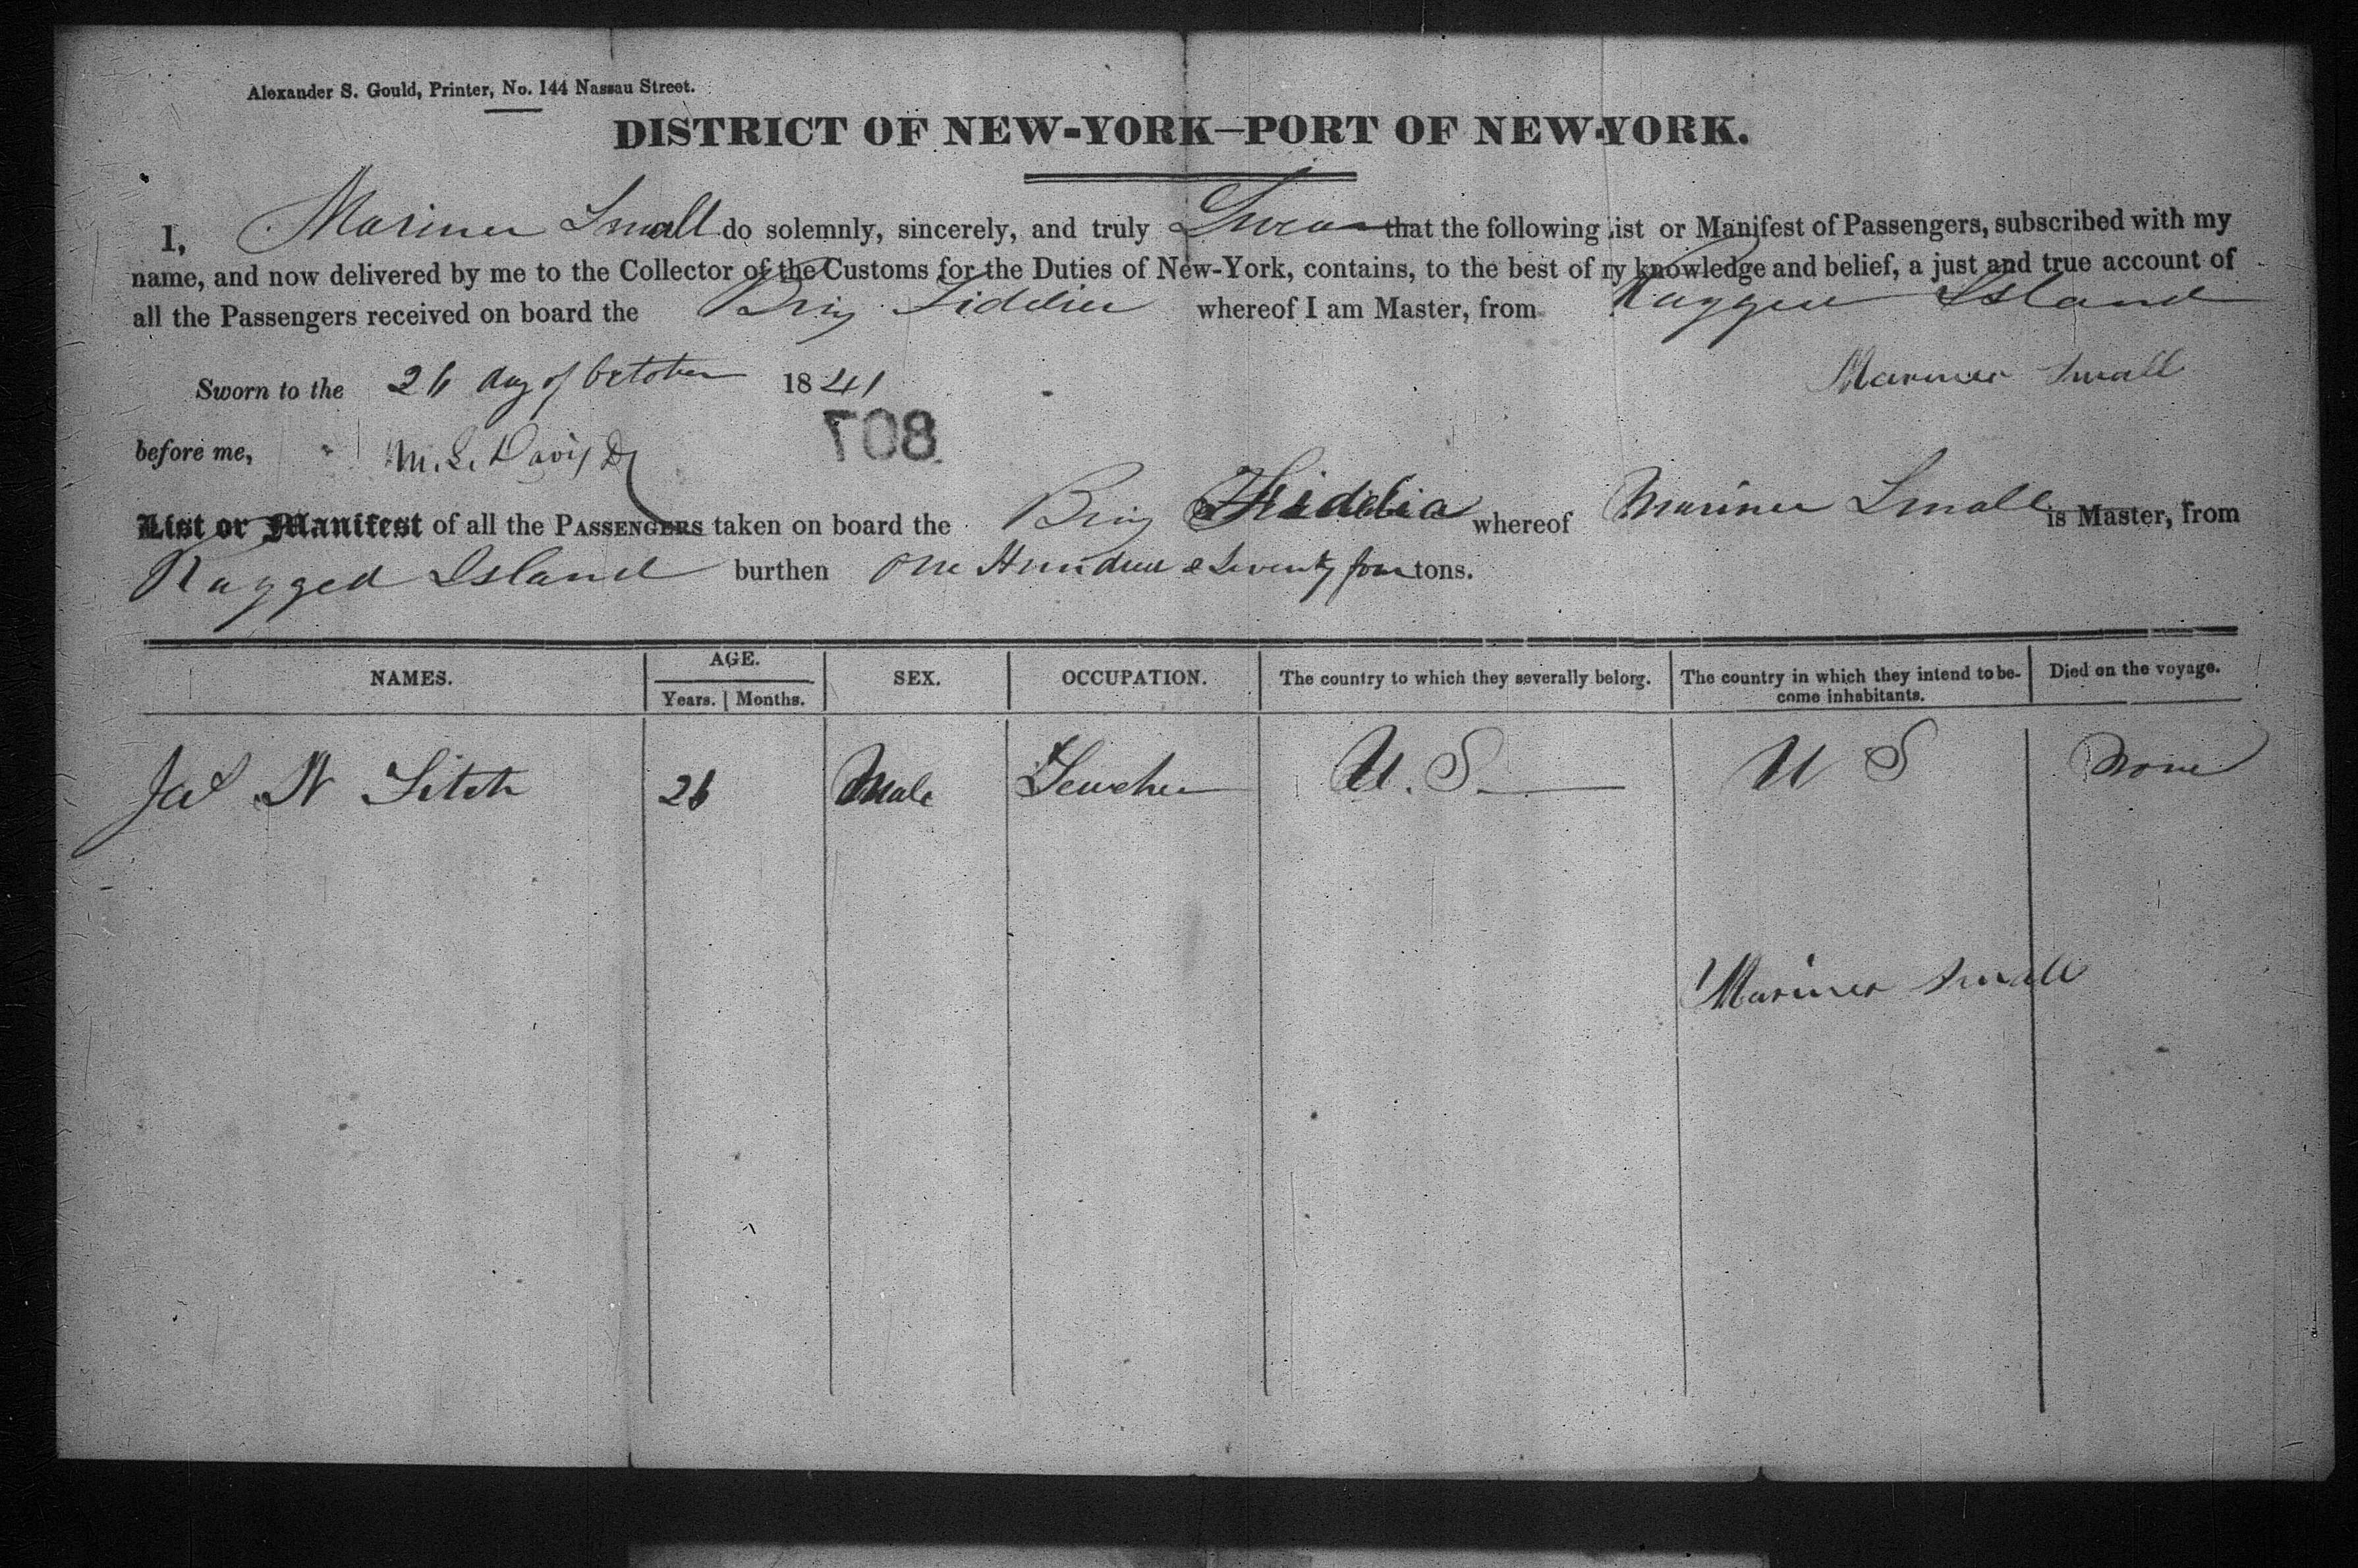 Alexander S. Gould, Printer, No. 144 Nassau Street.
DISTRICT OF NEW-YORK—PORT OF NEW-YORK.
I, Mariner Small do solemnly, sincerely, and truly Swear that the following list or Manifest of Passengers, subscribed with my
name, and now delivered by me to the Collector of the Customs for the Duties of New-York, contains, to the best of my knowledge and belief, a just and true account of
all the Passengers received on board the Brig whereof I am Master, from Ragged Island
Mariner Small
Sworn to the 26 day of October 1841
708
before me, M. L. Davis
List or Manifest of all the PASSENGERS taken on board the Brig Fidelia whereof Mariner Small is Master, from
Ragged Island burthen One Hundred & Seventy four tons.
NAMES. AGE. Years. Months. SEX. OCCUPATION. The country to which they severally belong. The country in which they intend to become inhabitants. Died on the voyage.
Jas N Fitch 26 Male Teacher U.S. U S None
Mariner Small